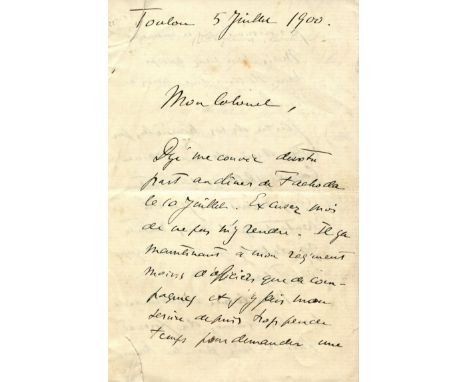 Toulon 5 Juillet 1900.
Mon Colonel,
Dyé me convie de votre
part au dîner de Fachoda
le 10 Juillet. Excusez moi
de ne pas m'y rendre. Il y a
maintenant à mon régiment
moins d'officiers que de com-
pagnies et j'y fais mon
service depuis trop peu de
temps pour demander une